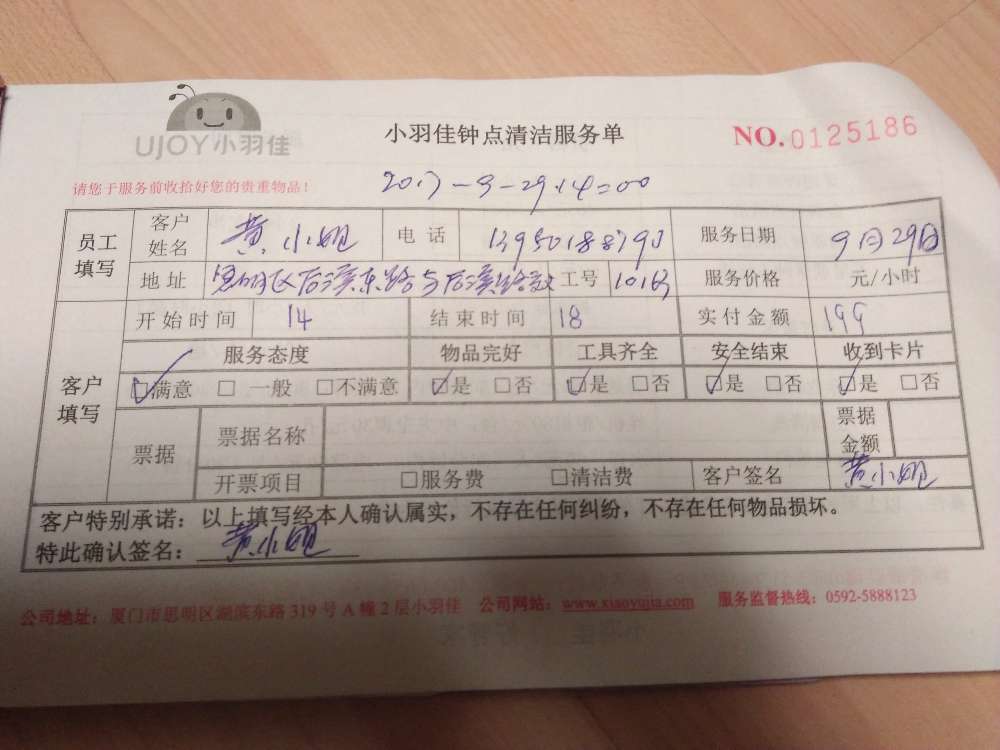 UJOY小羽佳
小羽佳钟点清洁服务单
NO.0125186
请您于服务前收拾好您的贵重物品！
2017-9-29.14:00
员工填写 客户姓名 黄小姐 电话 服务日期 9月29日
地址 工号 服务价格 元/小时
客户填写 开始时间 14 结束时间 18 实付金额 199
服务态度 物品完好 工具齐全 安全结束 收到卡片
☑满意 □ 一般 □不满意 ☑是 □否 ☑是 □否 ☑是 □否 ☑是 □否
票据 票据名称 票据金额
开票项目 □服务费 □清洁费 客户签名 黄小姐
客户特别承诺：以上填写经本人确认属实，不存在任何纠纷，不存在任何物品损坏。
特此确认签名：黄小姐
公司地址：厦门市思明区湖滨东路 319 号 A 幢 2 层小羽佳 公司网站：www.xiaoyujia.com 服务监督热线：0592-5888123